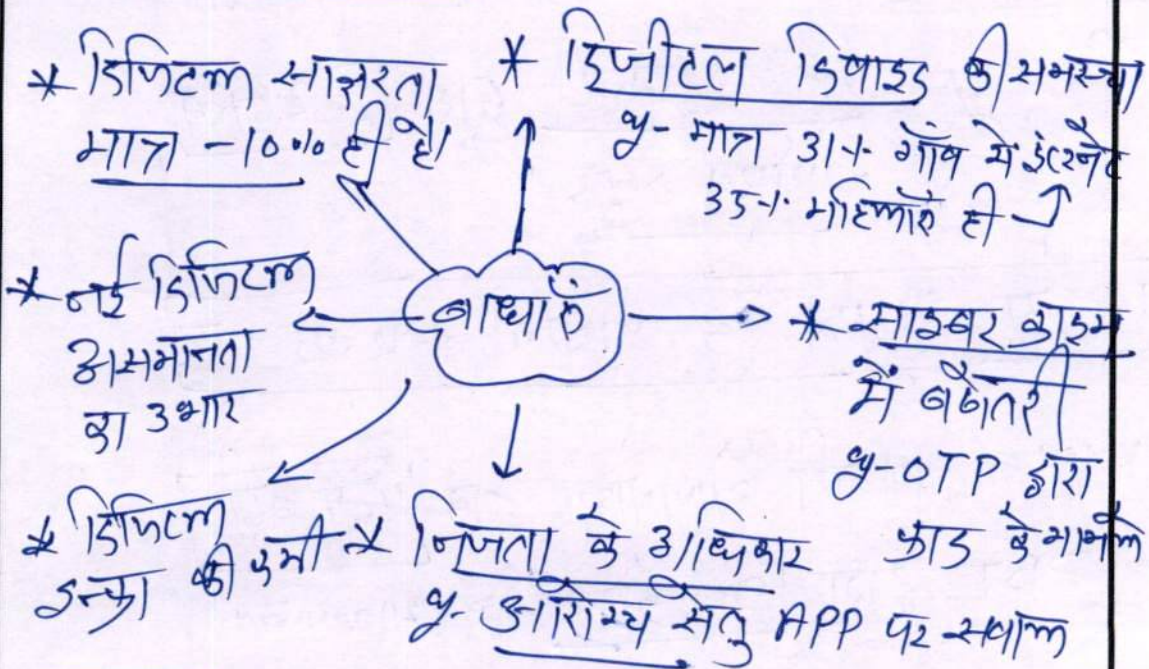 * डिजिटल साक्षरता
मात्र - 10% ही है।
* डिजीटल डिवाइड की समस्या
eg- मात्र 31% गाँव में इंटरनेट
35% महिलाएं ही
* नई डिजिटल
असमानता
का उभार
बाधाएँ
* साइबर क्राइम
में बढोतरी
eg- OTP द्वारा
फ्राड के मामले
* डिजिटल
इन्फ्रा की कमी
* निजता के अधिकार
eg- आरोग्य सेतु APP पर सवाल